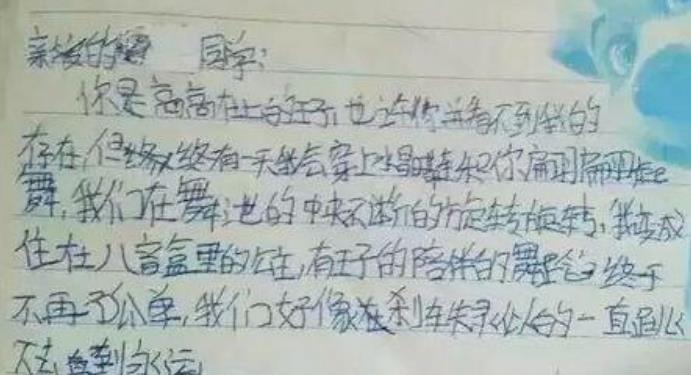 亲爱的 同学:
你是高高在上的王子,也许你并看不到我的
存在,但终有一天我会穿上水晶鞋和你翩翩起
舞,我们在舞池的中央不断的旋转旋转,我变成
住在八音盒里的公主,有王子的陪伴的舞 终于
不再孤单,我们好像 刹车失灵似的一直跳
下去,直到永远